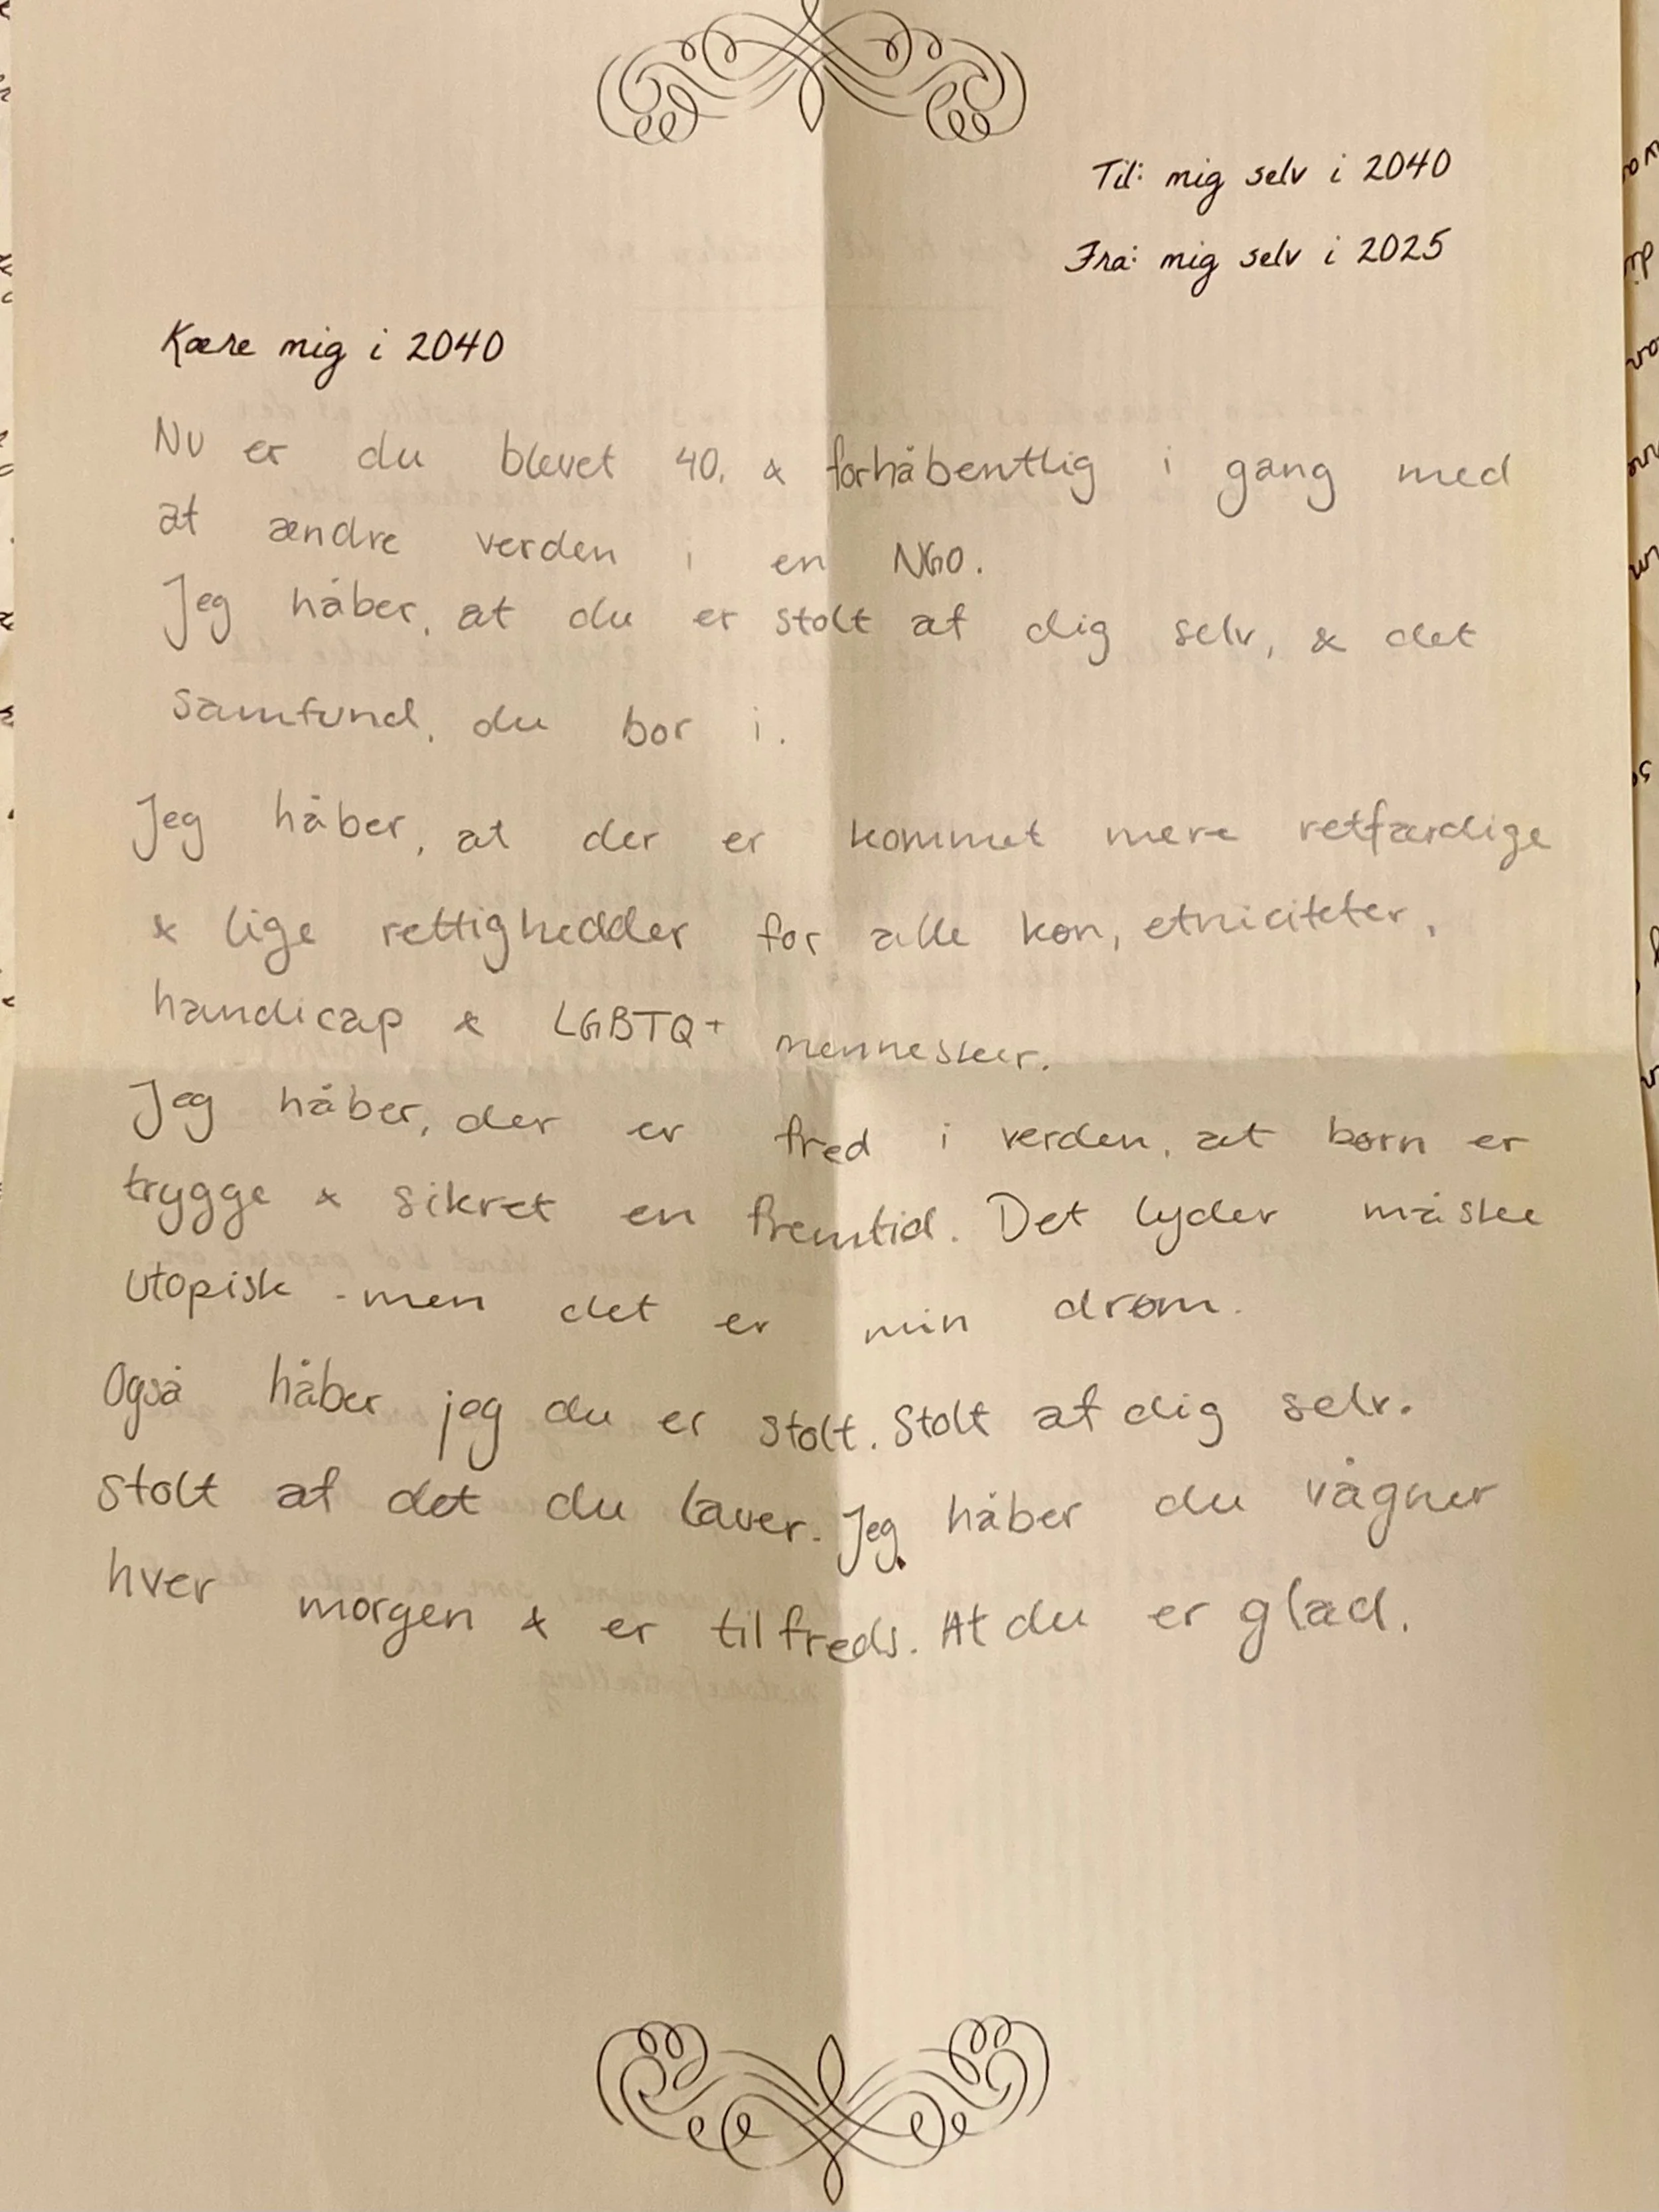 Til: mig selv i 2040
Fra: mig selv i 2025
Kære mig i 2040
Nu er du blevet 40, & forhåbentlig i gang med
at ændre verden i en NGO.
Jeg håber, at du er stolt af dig selv, & det
samfund, du bor i.
Jeg håber, at der er kommet mere retfærdige
& lige rettighedder for alle køn, etniciteter,
handicap & LGBTQ+ mennesker.
Jeg håber, der er fred i verden, at børn er
trygge & sikret en fremtid. Det lyder måske
utopisk - men det er min drøm.
Også håber jeg du er stolt. Stolt af dig selv.
Stolt af det du laver. Jeg håber du vågner
hver morgen & er tilfreds. At du er glad.